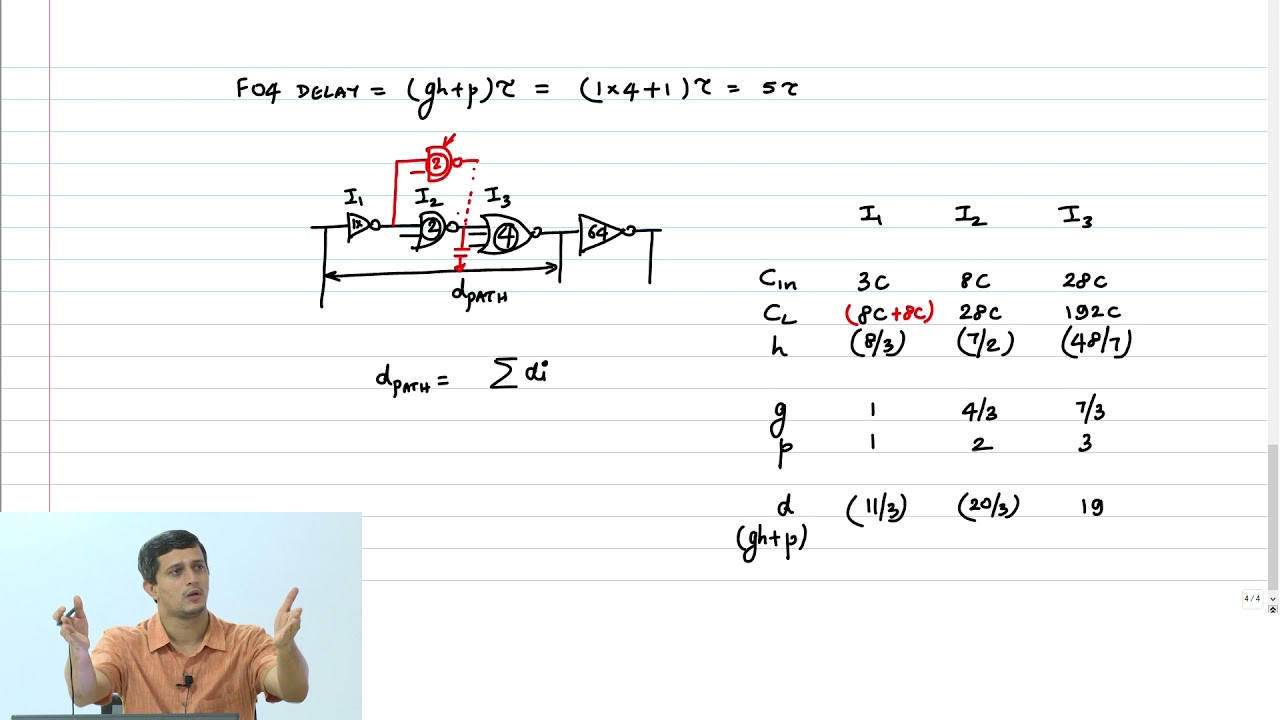 FO4 DELAY = (gh+p)τ = (1×4+1)τ = 5τ
2
I1 I2 I3
1x 2 4 64
dPATH
dPATH = ∑ di
I1 I2 I3
Cin 3C 8C 28C
CL (8C+8C) 28C 192C
h (8/3) (7/2) (48/7)
g 1 4/3 7/3
p 1 2 3
d (11/3) (20/3) 19
(gh+p)
4 / 4